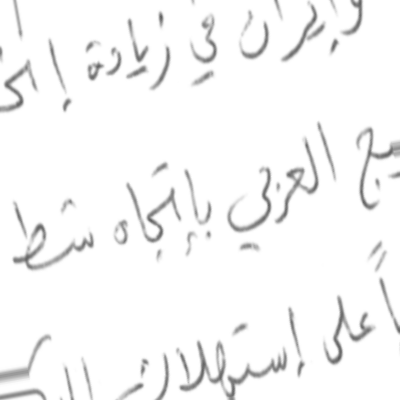 وإيران في زيادة
العربي بإتجاه شط
على إستهلاك